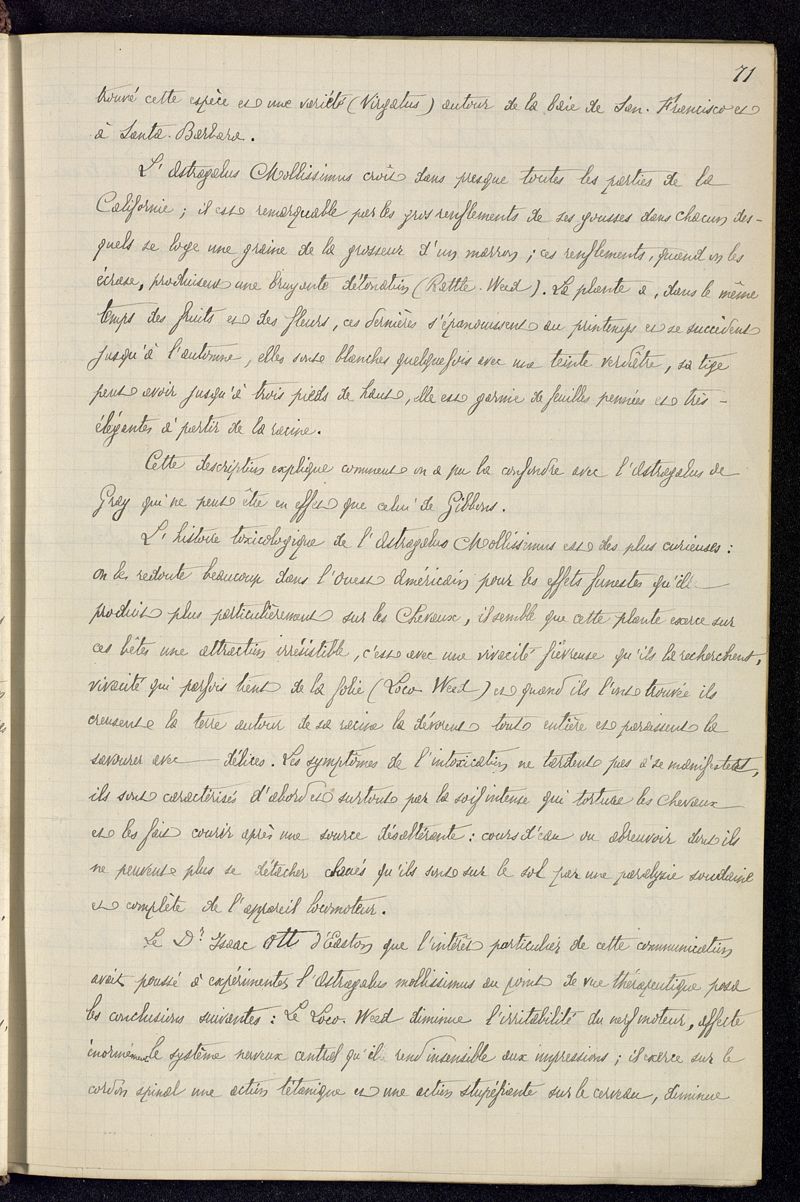 71
trouvé cette espèce et une variété (Virgatus) autour de la baie de San. Francisco et
à Santa. Barbara.
L'Astragalus Mollissimus croît dans presque toutes les parties de la
Californie ; il est remarquable par les gros renflements de ses gousses dans chacun des-
quels se loge une graine de la grosseur d'un marron ; ces renflements, quand on les
écrase, produisent une bruyante détonation (Rattle-Weed). La plante a, dans le même
temps des fruits et des fleurs, ces dernières s'épanouissent au printemps et se succèdent
jusqu'à l'automne, elles sont blanches quelquefois avec une teinte verdâtre, sa tige
peut avoir jusqu'à trois pieds de haut, elle est garnie de feuilles pennées et très-
élégantes à partir de la racine.
Cette description explique comment on a pu la confondre avec l'Astragalus de
Gray qui ne peut être en effet que celui de Gibbons.
L'histoire toxicologique de l'Astragalus Mollissimus est des plus curieuses :
on le redoute beaucoup dans l'Ouest Américain pour les effets funestes qu'il
produit plus particulièrement sur les Chevaux, il semble que cette plante exerce sur
ces bêtes une attraction irrésistible, c'est avec une vivacité fiévreuse qu'ils la recherchent,
vivacité qui parfois tient de la folie (Loco Weed) et quand ils l'ont trouvée ils
creusent la terre autour de sa racine la dévorent tout entière et paraissent la
savourer avec délices. Les symptômes de l'intoxication ne tardent pas à se manifester,
ils sont caractérisés d'abord et surtout par la soif intense qui torture les Chevaux
et les fait courir après une source désaltérante : cours d'eau ou abreuvoir dont ils
ne peuvent plus se détacher cloués qu'ils sont sur le sol par une paralysie soudaine
et complète de l'appareil locomoteur.
Le Dr Isaac Ott d'Easton que l'intérêt particulier de cette communication
avait poussé à expérimenter l'Astragalus mollissimus au point de vue thérapeutique posa
les conclusions suivantes : Le Loco-Weed diminue l'irritabilité du nerf moteur, affecte
énormément le système nerveux central qu'il rend insensible aux impressions ; il exerce sur le
cordon spinal une action tétanique et une action stupéfiante sur le cerveau, diminue